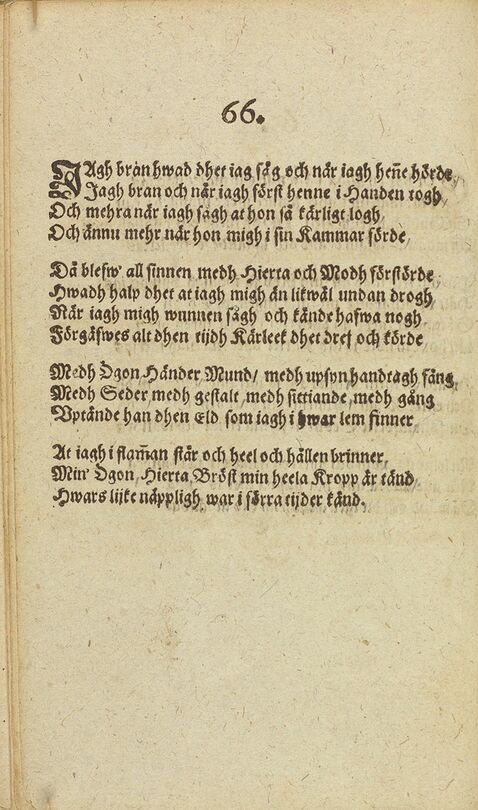 66.
JAgh brän hwad dhet iag säg och när iagh hen̄e hörde,
Jagh bran och när iagh först henne i Handen togh,
Och mehra när iagh sågh at hon så kärligt logh,
Och ännu mehr när hon migh i sin Kammar förde,
Då blefw' all sinnen medh Hierta och Modh förstörde,
Hwadh halp dhet at iagh migh än likwäl undan drogh
När iagh migh wunnen sågh och kände hafwa nogh
Förgäfwes alt dhen tijdh Kärleek dhet dref och körde
Medh Ögon Händer Mund/ medh upsyn handtagh fäng,
Medh Seder medh gestalt, medh sittiande, medh gäng
Vptände han dhen Eld som iagh i hwar lem finner
At iagh i flam̄an står och heel och hållen brinner,
Min' Ögon, Hierta, Bröst min heela Kropp är tänd,
Hwars lijke näppligh war i förra tijder känd.